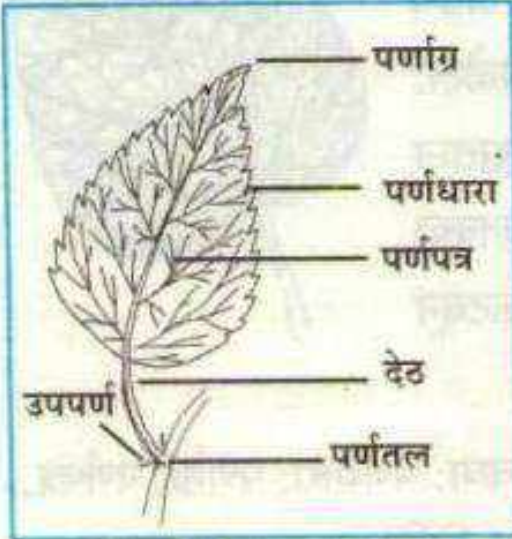 पर्णाग्र
पर्णधारा
पर्णपत्र
देठ
उपपर्ण
पर्णतल